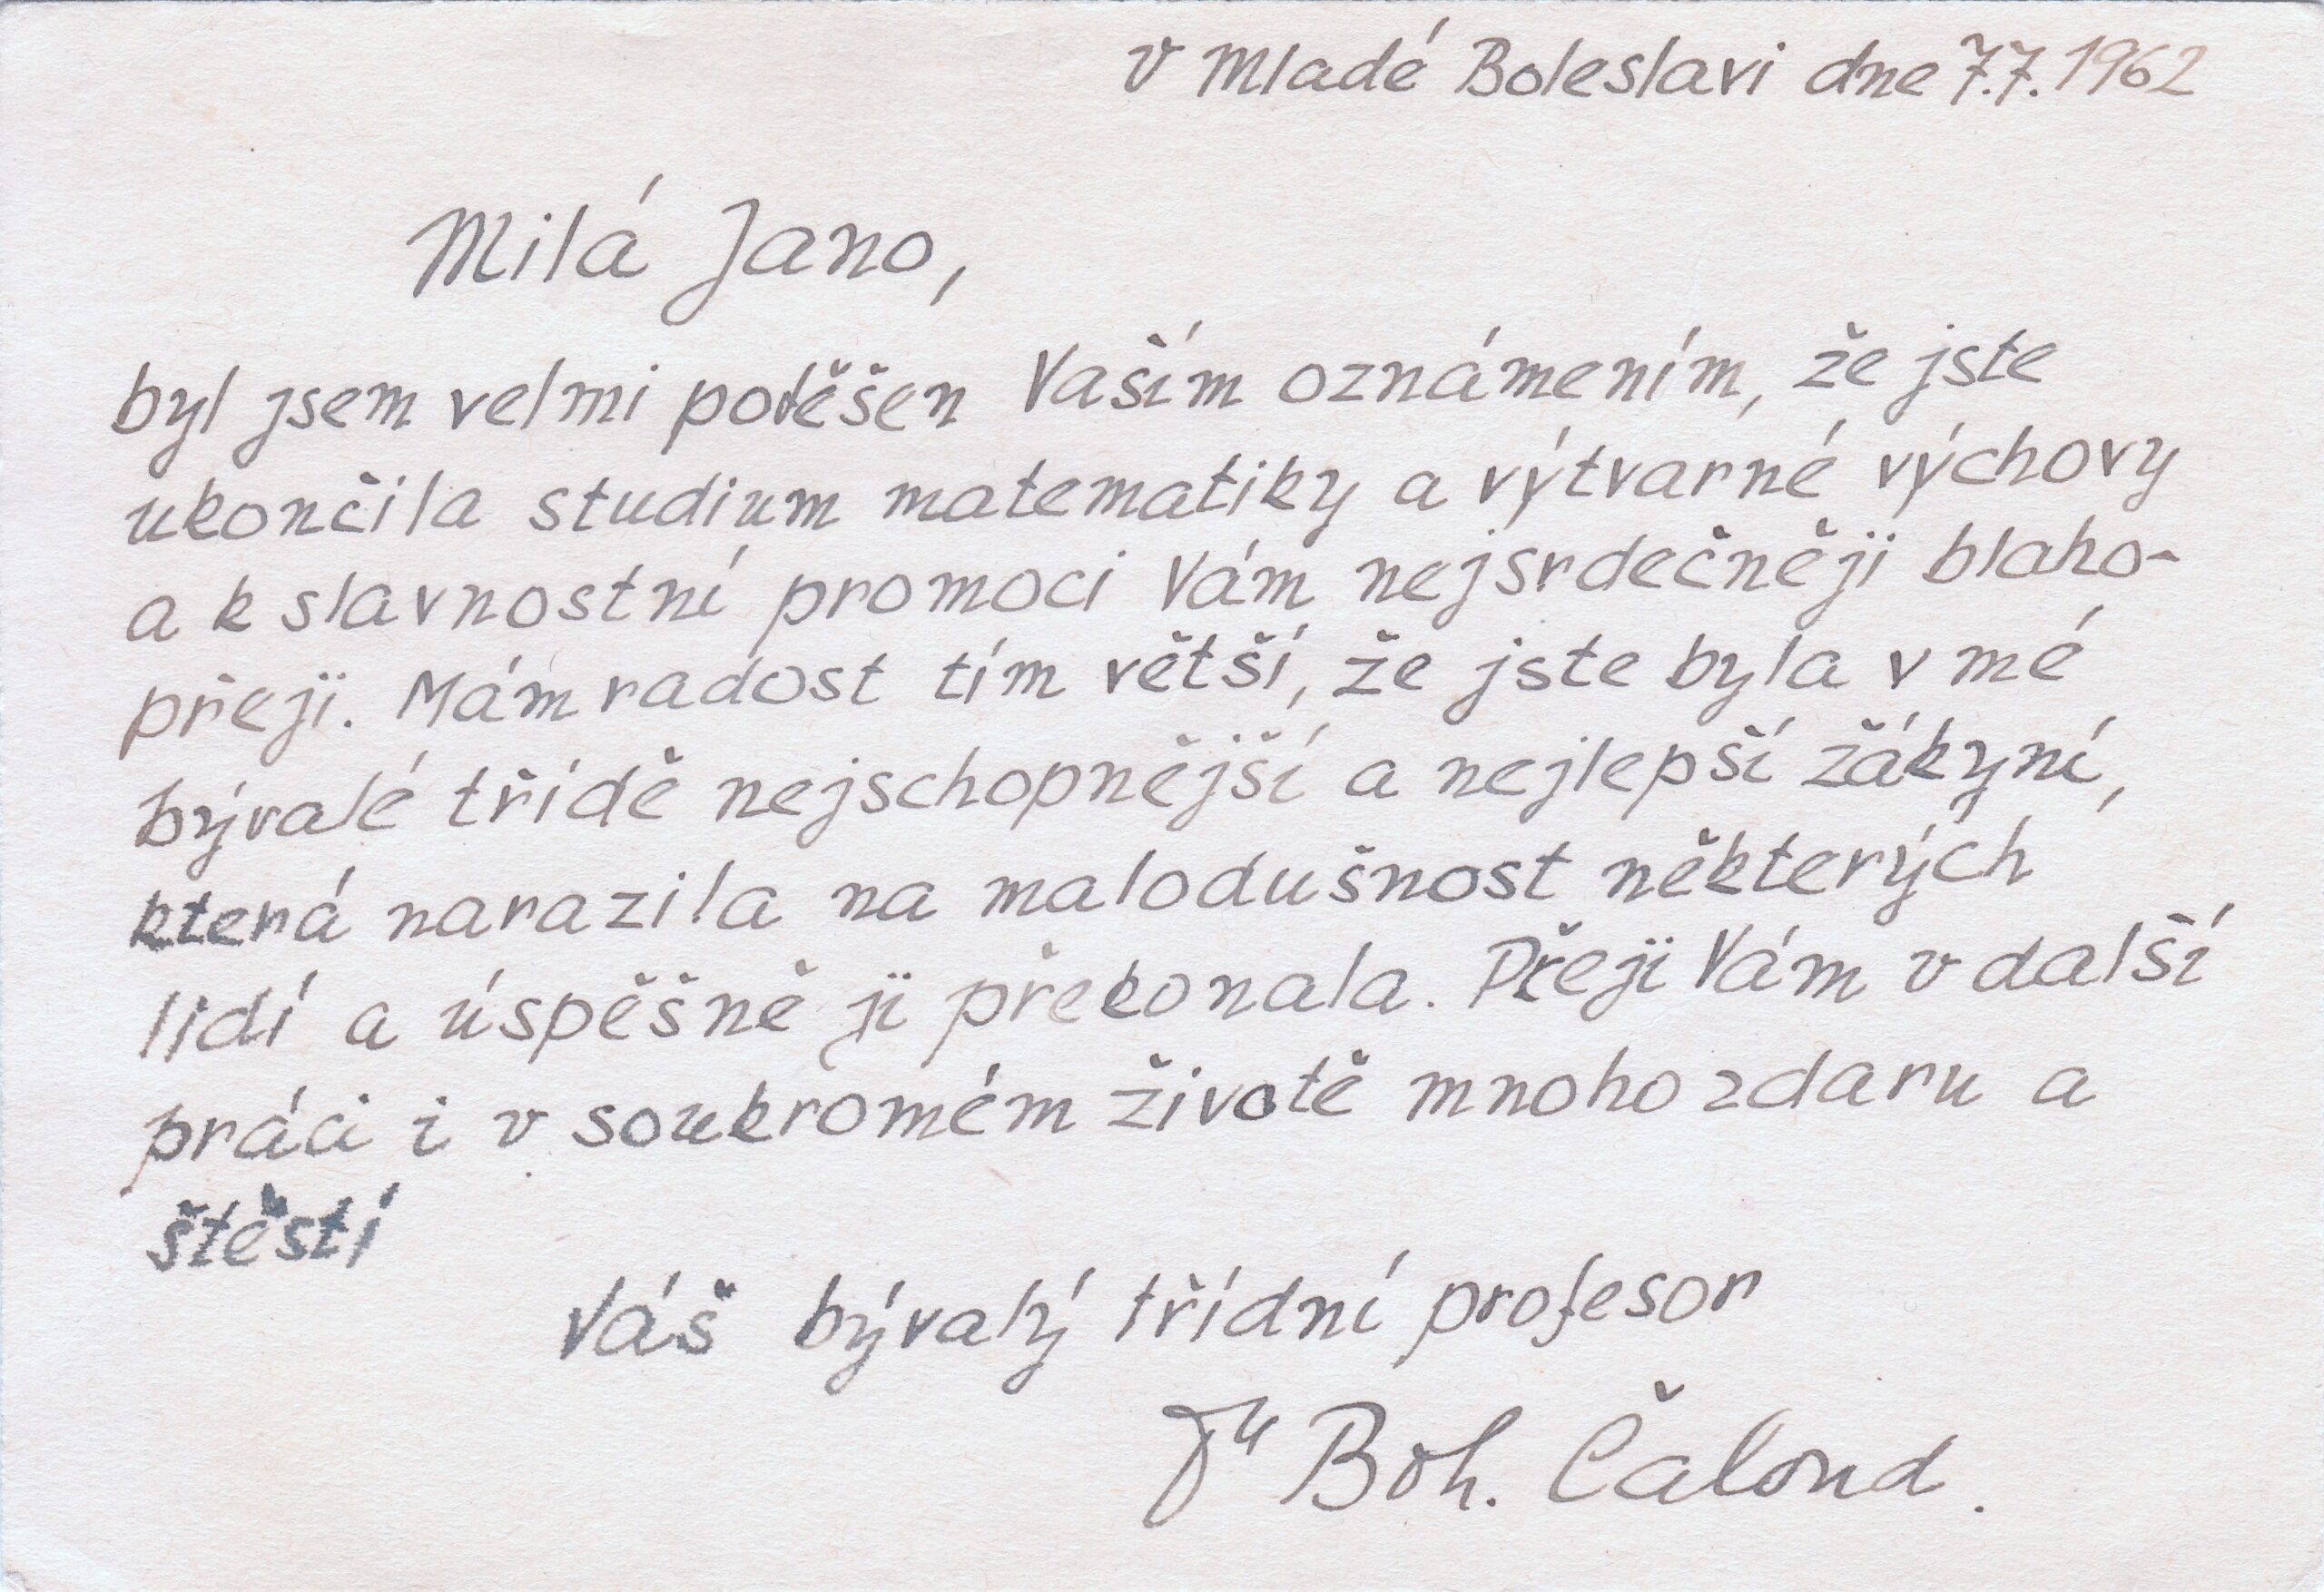 v Mladé Boleslavi dne 7.7.1962
Milá Jano,
byl jsem velmi potěšen Vaším oznámením, že jste
ukončila studium matematiky a výtvarné výchovy
a k slavnostní promoci Vám nejsrdečněji blaho-
přeji. Mám radost tím větší, že jste byla v mé
bývalé třídě nejschopnější a nejlepší žákyní,
která narazila na malodušnost některých
lidí a úspěšně ji překonala. Přeji Vám v další
práci i v soukromém životě mnoho zdaru a
štěstí
Váš bývalý třídní profesor
Boh. Čalond.